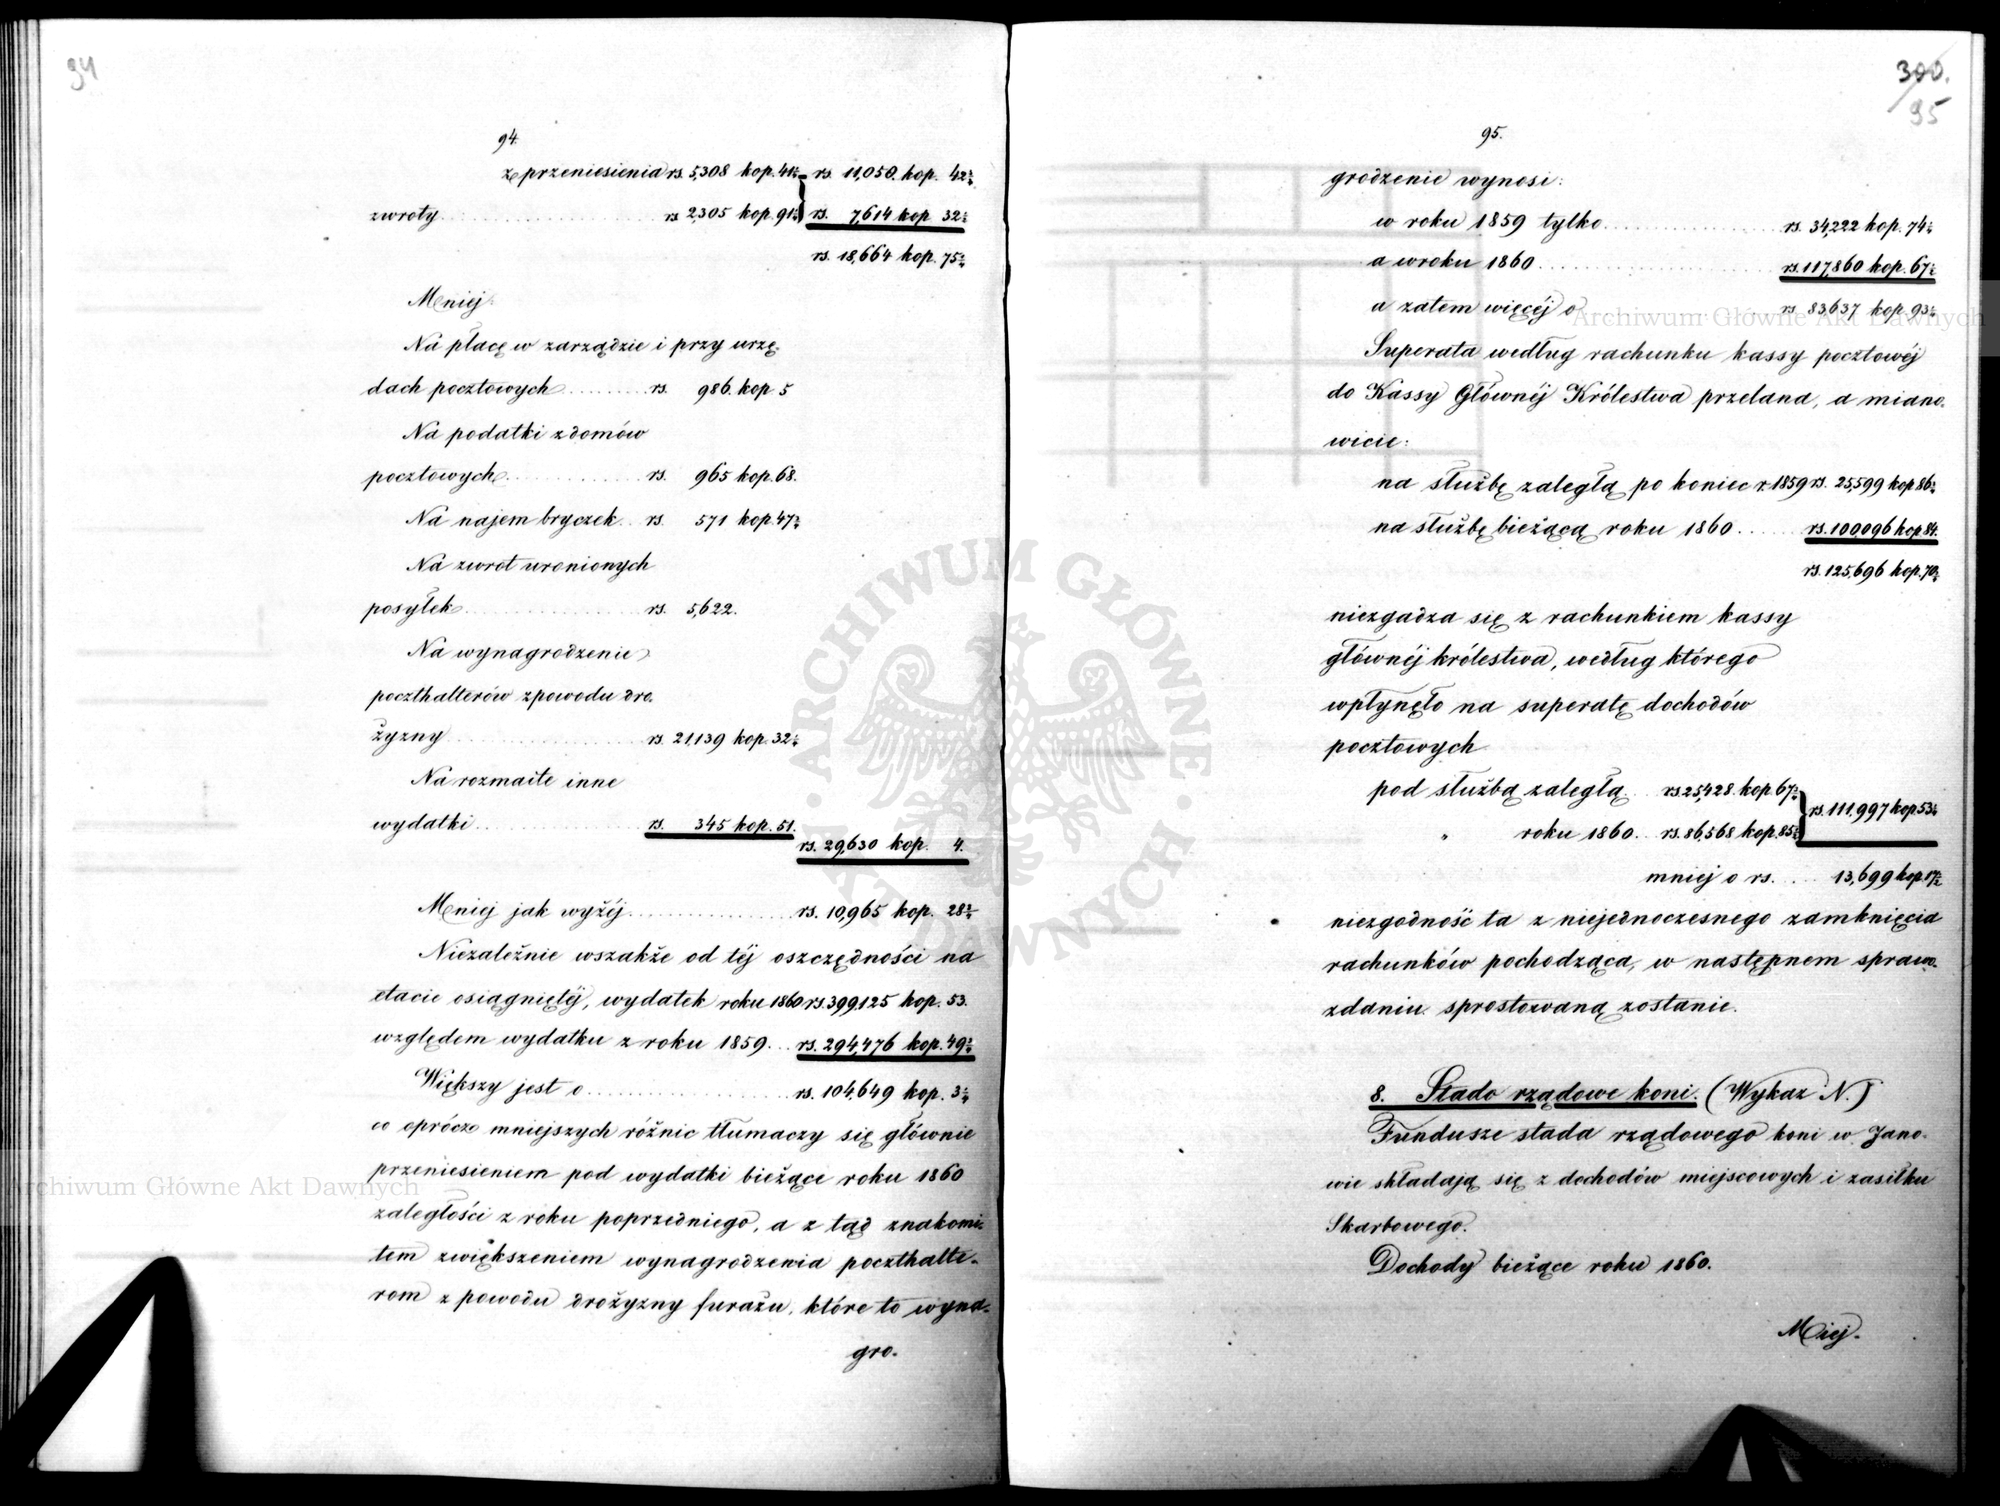 94
94.
z przeniesienia rs. 5,308 kop. 41½ rs. 11,050. kop. 42¾
zwroty rs 2,305 kop. 91½ rs. 7,614 kop 32½
rs. 18,664 kop. 75¾
Mniej:
Na płacę w zarządzie i przy urzę-
dach pocztowych rs. 986. kop. 5
Na podatki z domów
pocztowych rs. 965 kop. 68.
Na najem bryczek rs. 571 kop. 47½
Na zwrot uronionych
posyłek rs. 5,622.
Na wynagrodzenie
poczthalterów z powodu dro-
żyzny rs. 21,139 kop. 32½
Na rozmaite inne
wydatki rs. 345 kop. 51.
rs. 29,630 kop. 4.
Mniej jak wyżéj rs. 10,965 kop. 28¾
Niezależnie wszakże od téj oszczędności na
etacie osiągniętéj, wydatek roku 1860 rs. 399,125 kop. 53.
względem wydatku z roku 1859 rs. 294,476 kop. 49¾
Większy jest o rs. 104,649 kop. 3¼
co oprócz mniejszych różnic tłumaczy się głównie
przeniesieniem pod wydatki bieżące roku 1860
zaległości z roku poprzedniego, a z tąd znakomi-
tem zwiększeniem wynagrodzenia poczthalte-
rom z powodu drożyzny furażu, które to wyna-
gro-
300.
95
95.
grodzenie wynosi:
w roku 1859 tylko rs. 34,222 kop. 74½
a w roku 1860 rs. 117,860 kop. 67½
a zatem więcéj o rs 83,637 kop. 93½
Superata według rachunku kassy pocztowéj
do Kassy Głównéj Królestwa przelana, a miano-
wicie:
na służbę zaległą po koniec r. 1859 rs. 25,599 kop 86½
na służbę bieżącą roku 1860 rs. 100,096 kop 84.
rs. 125,696 kop. 70½
niezgadza się z rachunkiem kassy
głównéj królestwa, według którego
wpłynęło na superatę dochodów
pocztowych
pod służbą zaległą rs 25,428. kop. 67½ rs. 111,997 kop 53½
" roku 1860. rs. 86,568 kop. 85½
mniej o rs. 13,699 kop 17½
niezgodność ta z niejednoczesnego zamknięcia
rachunków pochodząca, w następnem sprawo-
zdaniu sprostowaną zostanie.
8. Stado rządowe koni. (Wykaz N.)
Fundusze stada rządowego koni w Jano-
wie składają się z dochodów miejscowych i zasiłku
Skarbowego.
Dochody bieżące roku 1860.
Miej-
Archiwum Główne Akt Dawnych
Archiwum Główne Akt Dawnych
ARCHIWUM GŁÓWNE AKT DAWNYCH